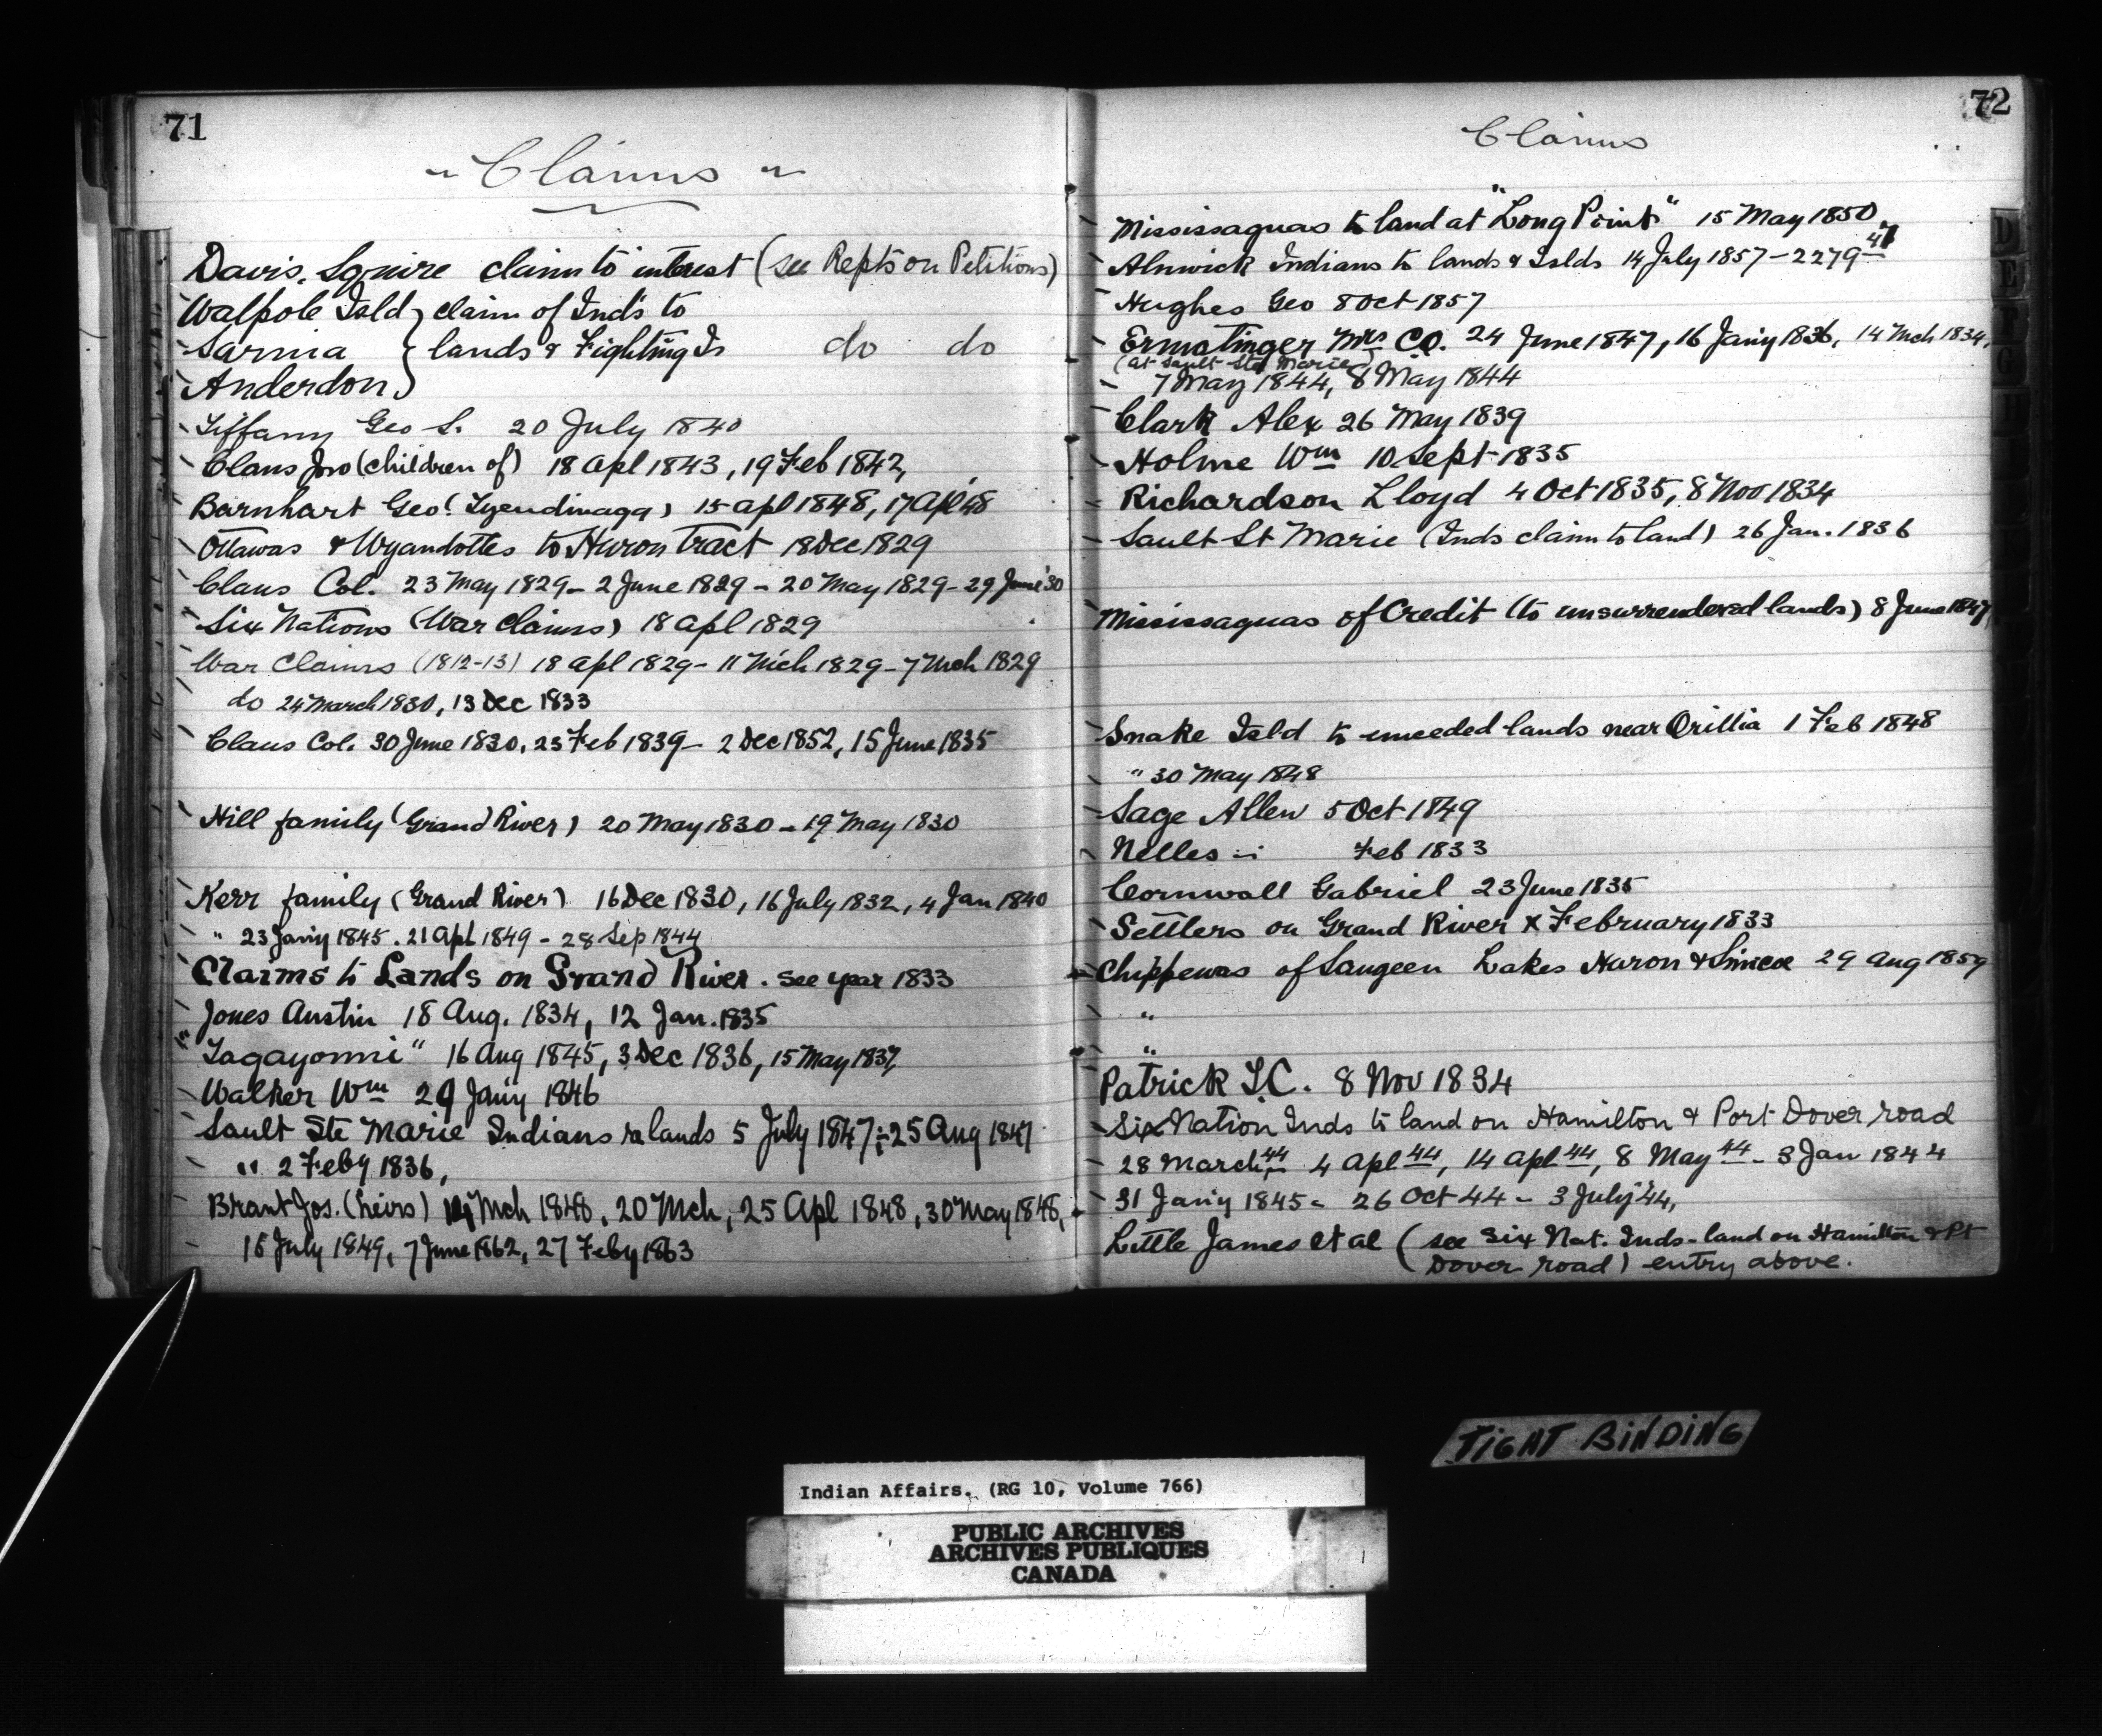 71
Claims
Davis, Squire claim to interest (see Repts on Petitions)
Walpole Isld } claim of Inds to
Sarnia } lands & Fighting Is do do
Anderdon }
Tiffany Geo S. 20 July 1840
Claus Jno (children of) 18 apl 1843, 19 Feb 1842,
Barnhart Geo (Tyendinaga) 15 apl 1848, 17 Apl 48
Ottawas & Wyandottes to Huron Tract 18 Dec 1829
Claus Col. 23 May 1829 - 2 June 1829 - 20 May 1829 - 29 June '30
Six Nations (War Claims) 18 apl 1829
War Claims (1812-13) 18 apl 1829 - 11 Mch 1829 - 7 Mch 1829
do 24 March 1830, 13 Dec 1833
Claus Col. 30 June 1830, 23 Feb 1839 - 2 Dec 1852, 15 June 1835
Hill family (Grand River) 20 May 1830 - 19 May 1830
Kerr family (Grand River) 16 Dec 1830, 16 July 1832, 4 Jan 1840
" 23 Jan'y 1845. 21 Apl 1849 - 28 Sep 1844
Claims to Lands on Grand River. see year 1833
Jones Austin 18 Aug. 1834, 12 Jan. 1835
"Tagayonni" 16 Aug 1845, 3 Dec 1836, 15 May 1837,
Walker Wm 29 Jan'y 1846
Sault Ste Marie Indians ra lands 5 July 1847 - 25 Aug 1847
" 2 Feby 1836,
Brant Jos. (heirs) 14 Mch 1848, 20 Mch, 25 Apl 1848, 30 May 1848,
15 July 1849, 7 June 1862, 27 Feby 1863
72
Claims
Mississaguas to land at "Long Point" 15 May 1850
Alnwick Indians to lands & Islds 14 July 1857 - 2279 47
Hughes Geo 8 Oct 1857
Ermatinger Mrs CO. 24 June 1847, 16 Jan'y 1836, 14 Mch 1834,
(at Sault Ste Marie)
7 May 1844, 8 May 1844
Clark Alex 26 May 1839
Holme Wm 10 Sept 1835
Richardson Lloyd 4 Oct 1835, 8 Nov 1834
Sault St Marie (Inds claim to land) 26 Jan. 1836
Mississaguas of Credit (to unsurrendered lands) 8 June 1847,
Snake Isld to unceded lands near Orillia 1 Feb 1848
" 30 May 1848
Sage Allen 5 Oct 1849
Nelles Feb 1833
Cornwall Gabriel 23 June 1835
Settlers on Grand River x February 1833
Chippewas of Saugeen Lakes Huron & Simcoe 29 Aug 1859
"
"
Patrick I.C. 8 Nov 1834
Six Nation Inds to land on Hamilton & Port Dover road
28 March 44 4 Apl 44, 14 Apl 44, 8 May 44 - 3 Jan 1844
31 Jan'y 1845 - 26 Oct 44 - 3 July '44,
Little James et al (see Six Nat. Inds - land on Hamilton & Pt
Dover road) entry above.
D
E
TIGHT BINDING
Indian Affairs. (RG 10, Volume 766)
PUBLIC ARCHIVES
ARCHIVES PUBLIQUES
CANADA